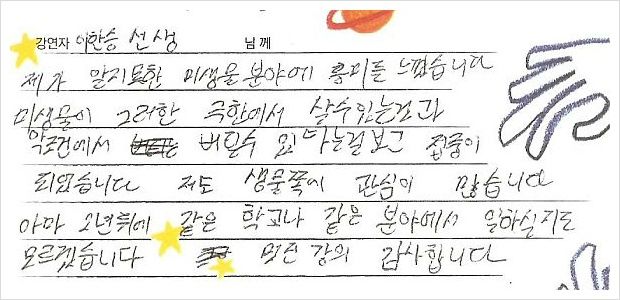 강연자 이한승 선생 님께
제가 알지못한 미생물분야에 흥미를 느꼈습니다
미생물이 그러한 극한에서 살수있는건과
악조건에서 버틸수 있다는걸보고 집중이
되었습니다 저도 생물쪽에 관심이 많습니다
아마 2년뒤에 같은 학교나 같은 분야에서 일하실지도
모르겠습니다 멋진 강의 감사합니다